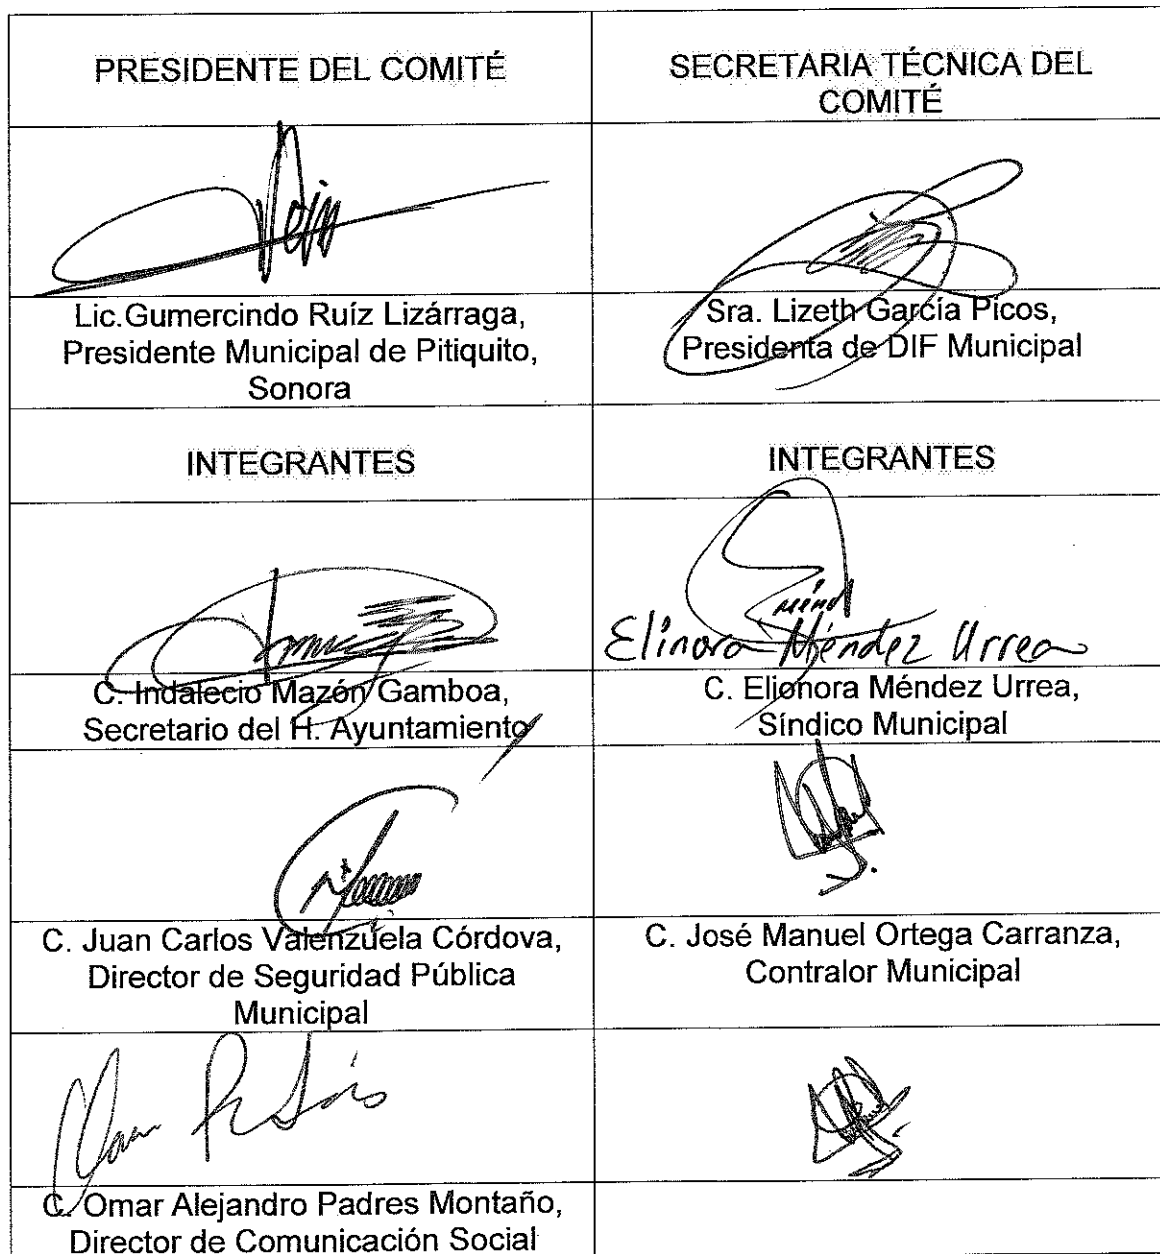 PRESIDENTE DEL COMITÉ
SECRETARIA TÉCNICA DEL
COMITÉ
Lic.Gumercindo Ruíz Lizárraga,
Presidente Municipal de Pitiquito,
Sonora
Sra. Lizeth García Picos,
Presidenta de DIF Municipal
INTEGRANTES
INTEGRANTES
Elinora Méndez Urrea
C. Indalecio Mazón Gamboa,
Secretario del H. Ayuntamiento
C. Elionora Méndez Urrea,
Síndico Municipal
C. Juan Carlos Valenzuela Córdova,
Director de Seguridad Pública
Municipal
C. José Manuel Ortega Carranza,
Contralor Municipal
C. Omar Alejandro Padres Montaño,
Director de Comunicación Social